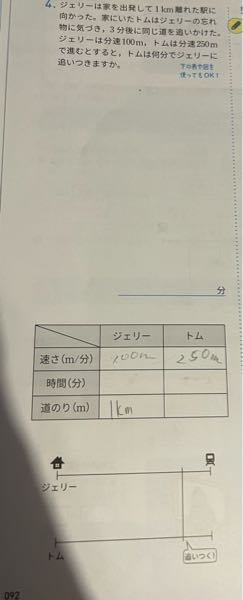 4. ジェリーは家を出発して1km離れた駅に
向かった。家にいたトムはジェリーの忘れ
物に気づき，3分後に同じ道を追いかけた。
ジェリーは分速100m，トムは分速250m
で進むとすると，トムは何分でジェリーに
追いつきますか。
下の表や図を
使ってもOK！
分
ジェリー トム
速さ(m/分) 100m 250m
時間(分)
道のり(m) 1km
ジェリー
トム
追いつく！
092